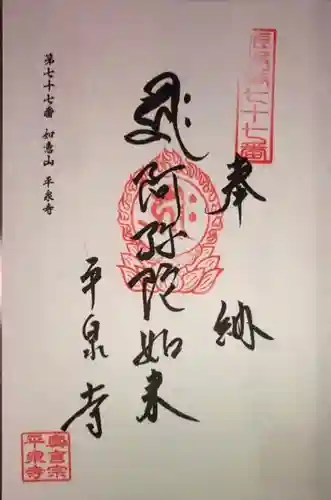 第七十七番
奉納
阿弥陀如来
平泉寺
第七十七番 如意山 平泉寺
真言宗
平泉寺